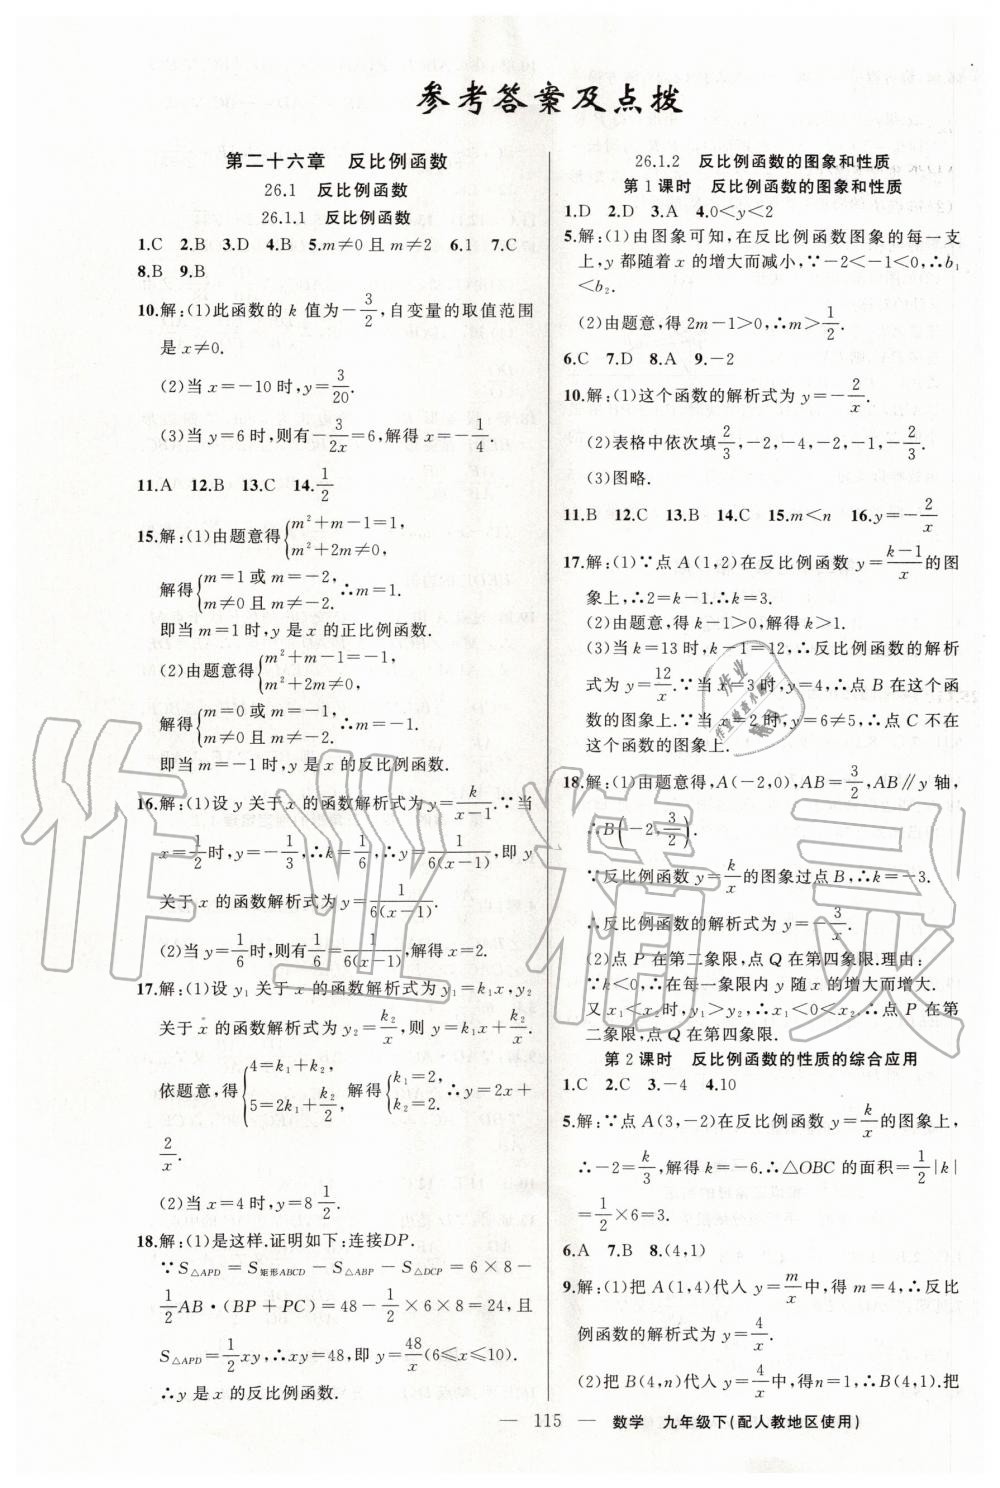 参考答案及点拨
第二十六章　反比例函数
26.1　反比例函数
26.1.1　反比例函数
1.C　2.B　3.D　4.B　5.m≠0 且 m≠2　6.1　7.C
8.B　9.B
10.解:(1)此函数的 k 值为－3/2,自变量的取值范围
是 x≠0.
(2)当 x＝－10 时,y＝3/20.
(3)当 y＝6 时,则有－3/2x＝6,解得 x＝－1/4
11.A　12.B　13.C　14.1/2
15.解:(1)由题意得{m²＋m－1＝1, m²＋2m≠0,
解得{m＝1 或 m＝－2, m≠0 且 m≠－2. ∴m＝1.
即当 m＝1 时,y 是 x 的正比例函数.
(2)由题意得{m²＋m－1＝－1, m²＋2m≠0,
解得{m＝0 或 m＝－1, m≠0 且 m≠－2. ∴m＝－1.
即当 m＝－1 时,y 是 x 的反比例函数.
16.解:(1)设 y 关于 x 的函数解析式为 y＝k/(x－1).∵当
x＝1/2时,y＝－1/3,∴k＝1/6,∴y＝1/6(x－1),即 y
关于 x 的函数解析式为 y＝1/6(x－1).
(2)当 y＝1/6时,则有1/6＝1/6(x－1),解得 x＝2.
17.解:(1)设 y₁ 关于 x 的函数解析式为 y₁＝k₁x,y₂
关于 x 的函数解析式为 y₂＝k₂/x,则 y＝k₁x＋k₂/x.
依题意,得{4＝k₁＋k₂, 5＝2k₁＋k₂/2, 解得{k₁＝2, k₂＝2. ∴y＝2x＋
2/x.
(2)当 x＝4 时,y＝8 1/2.
18.解:(1)是这样.证明如下:连接DP.
∵S△APD＝S矩形ABCD－S△ABP－S△DCP＝6×8－
1/2AB·(BP＋PC)＝48－1/2×6×8＝24,且
S△APD＝1/2xy,∴xy＝48,即 y＝48/x(6≤x≤10).
∴y 是 x 的反比例函数.
26.1.2　反比例函数的图象和性质
第 1 课时　反比例函数的图象和性质
1.D　2.D　3.A　4.0＜y＜2
5.解:(1)由图象可知,在反比例函数图象的每一支
上,y 都随着 x 的增大而减小,∵－2＜－1＜0,∴b₁
＜b₂.
(2)由题意,得 2m－1＞0,∴m＞1/2.
6.C　7.D　8.A　9.－2
10.解:(1)这个函数的解析式为 y＝－2/x.
(2)表格中依次填2/3,－2,－4,－2,－1,－2/3.
(3)图略.
11.B　12.C　13.B　14.C　15.m＜n　16.y＝－2/x
17.解:(1)∵点 A(1,2)在反比例函数 y＝(k－1)/x的图
象上,∴2＝k－1.∴k＝3.
(2)由题意,得 k－1＞0,解得 k＞1.
(3)当 k＝13 时,k－1＝12,∴反比例函数的解析
式为 y＝12/x.∵当 x＝3 时,y＝4,∴点 B 在这个函
数的图象上.∵当 x＝2 时,y＝6≠5,∴点 C 不在
这个函数的图象上.
18.解:(1)由题意得,A(－2,0),AB＝3/2,AB∥y 轴,
∴B(－2,3/2).
∵反比例函数 y＝k/x的图象过点 B,∴k＝－3.
∴反比例函数的解析式为 y＝－3/x.
(2)点 P 在第二象限,点 Q 在第四象限.理由:
∵k＜0,∴在每一象限内 y 随 x 的增大而增大.
又 x₁＜x₂时,y₁＞y₂,∴x₁＜0＜x₂.∴点 P 在第
二象限,点 Q 在第四象限.
第 2 课时　反比例函数的性质的综合应用
1.C　2.C　3.－4　4.10
5.解:∵点 A(3,－2)在反比例函数 y＝k/x的图象上,
∴－2＝k/3,解得 k＝－6.∴△OBC 的面积＝1/2|k|
＝1/2×6＝3.
6.A　7.B　8.(4,1)
9.解:(1)把 A(1,4)代入 y＝m/x中,得 m＝4,∴反比
例函数的解析式为 y＝4/x.
(2)把 B(4,n)代入 y＝4/x中,得n＝1,∴B(4,1).把
— 115 —　数学　九年级下(配人教地区使用)
作业精灵